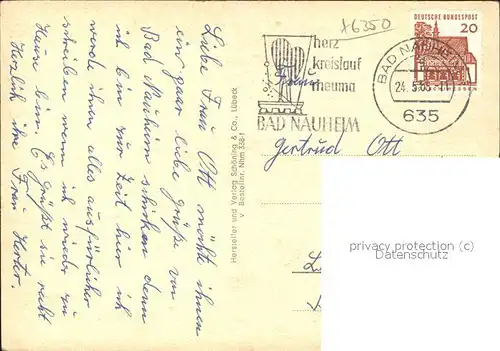 Liebe Frau Ott möchte ihnen
ein paar liebe grüße von
Bad Nauheim schicken denn
ich bin zur Zeit hier ich
werde ihnen alles ausführlicher
schreiben wenn ich wieder zu
Hause bin. Es grüßt sie recht
Herzlich ihre Frau
Hersteller und Verlag Schöning & Co., Lübeck
Bestellnr. Nhm 338/1
x6350
herz
kreislauf
rheuma
BAD NAUHEIM
DEUTSCHE BUNDESPOST
20
BAD NAUHEIM
635
Frau
Gertrud Ott
privacy protection (c)
Datenschutz